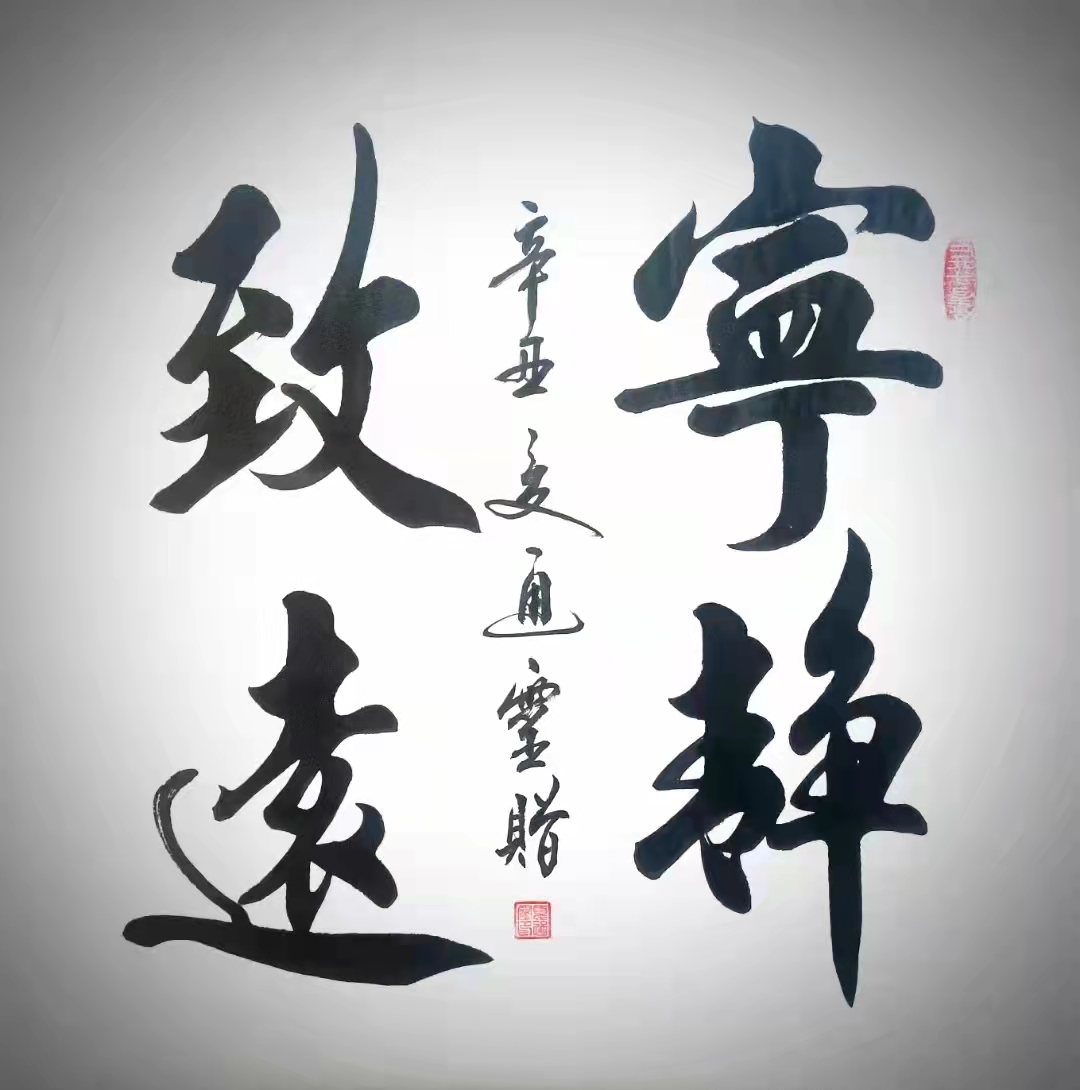 寧靜
致遠
辛丑夏通靈贈